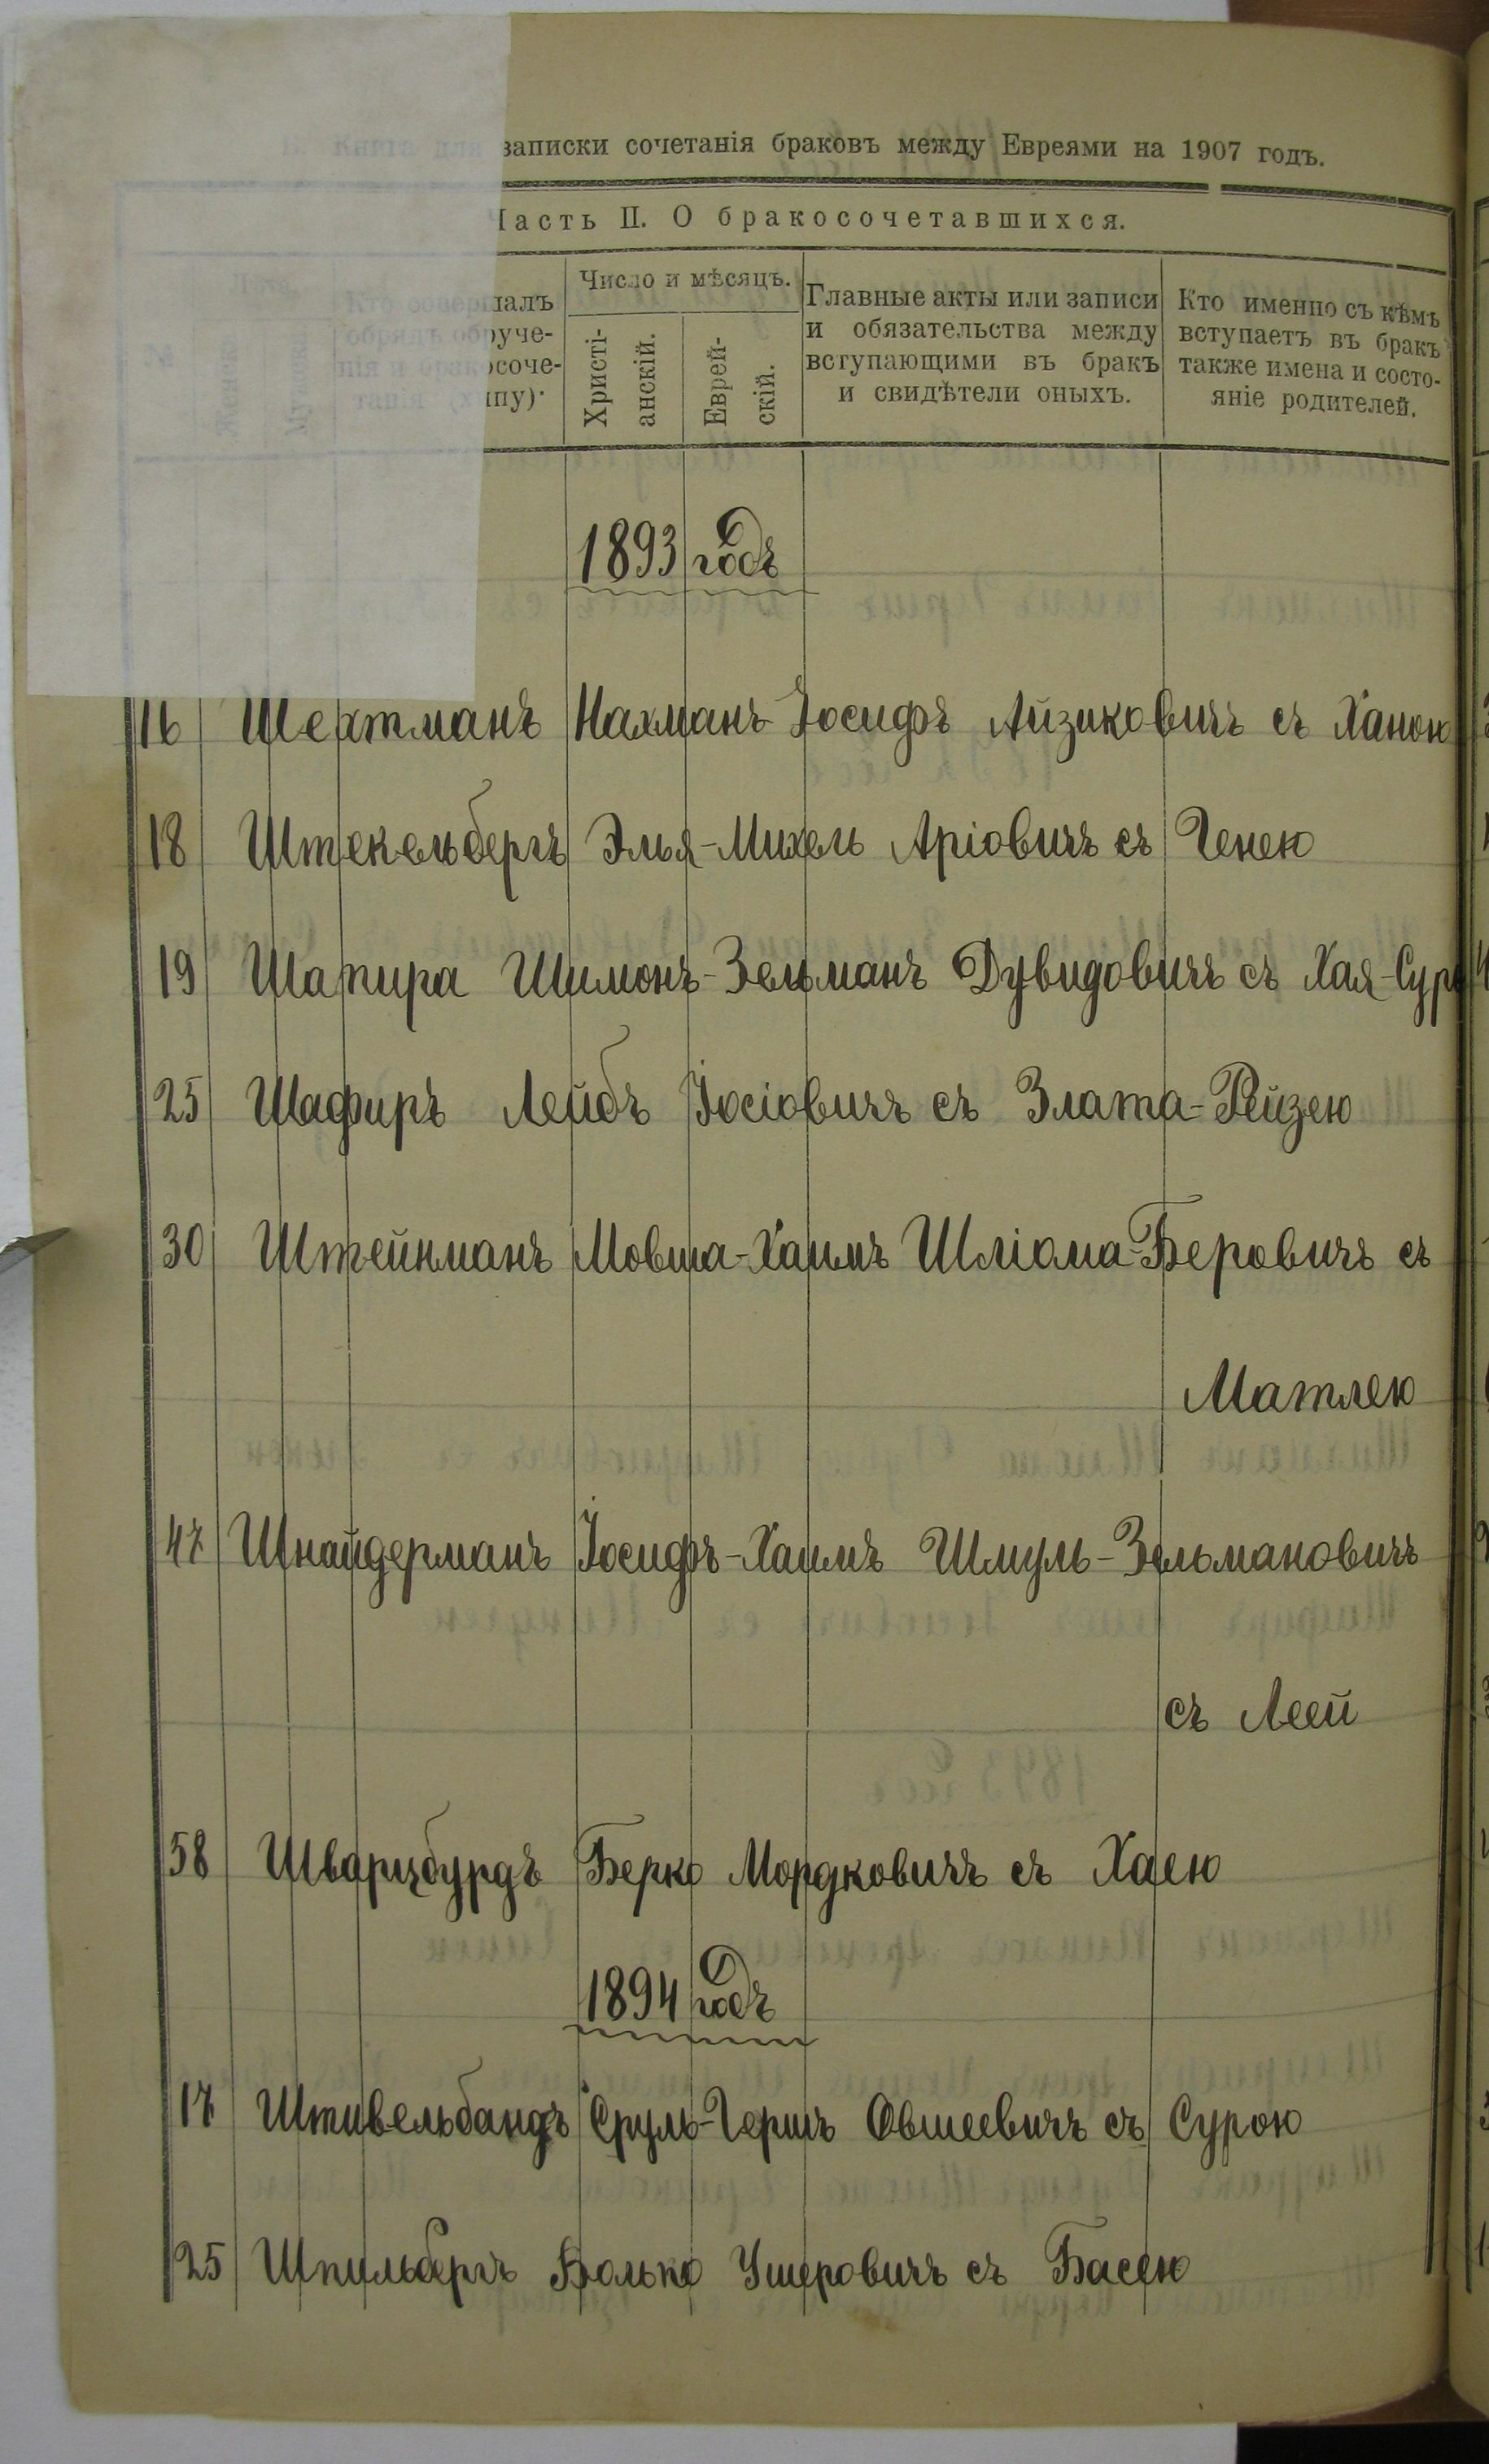 записки сочетанія браковъ между Евреями на 1907 годъ.
Часть II. О бракосочетавшихся.
Число и мѣсяцъ.
Христі-
анскій.
Еврей-
скій.
Главные акты или записи
и обязательства между
вступающими въ бракъ
и свидѣтели оныхъ.
Кто именно съ кѣмъ
вступаетъ въ бракъ
также имена и состо-
яніе родителей.
1893 годъ
16 Шехтманъ Нахманъ-Іосифъ Айзиковичъ съ Ханою
18 Штекельбергъ Элья-Михель Аріовичъ съ Генею
19 Шапира Шимонъ-Зельманъ Дувидовичъ съ Хая-Сур
25 Шафиръ Лейбъ Іосіовичъ съ Злата-Рейзею
30 Штейнманъ Мовша-Хаимъ Шліома-Беровичъ съ
Матлею
47 Шнайдерманъ Іосифъ-Хаимъ Шмуль-Зельмановичъ
съ Леей
58 Шварцбурдъ Берко Мордковичъ съ Хаею
1894 годъ
17 Штивельбандъ Сруль-Гершъ Овшеевичъ съ Сурою
25 Шпильбергъ Волько Ушеровичъ съ Басею